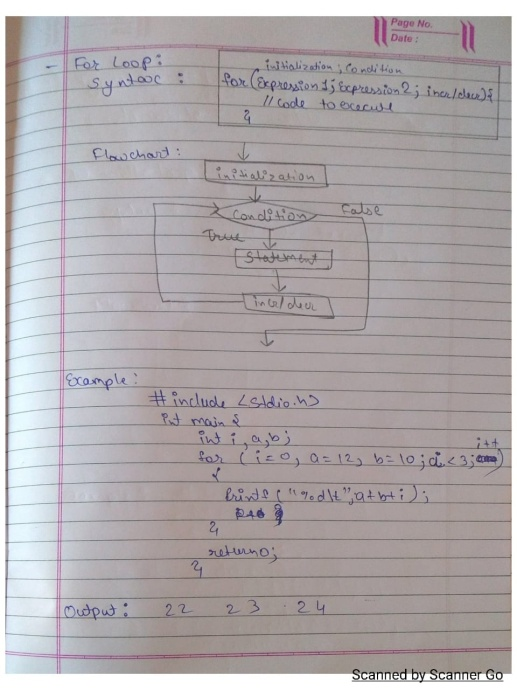 Page No.
Date :
- For Loop:
Syntax :
initialization ; Condition
for(Expression1; Expression2; incr/decr){
// Code to execute
}
Flowchart :
initialization
Condition
False
True
Statement
incr/decr
Example :
# include <stdio.h>
int main {
int i, a, b;
i++
for ( i=0, a=12, b=10; i<3; )
{
printf ("%d\t", a+b+i);
}
return 0;
}
Output : 22 23 24
Scanned by Scanner Go